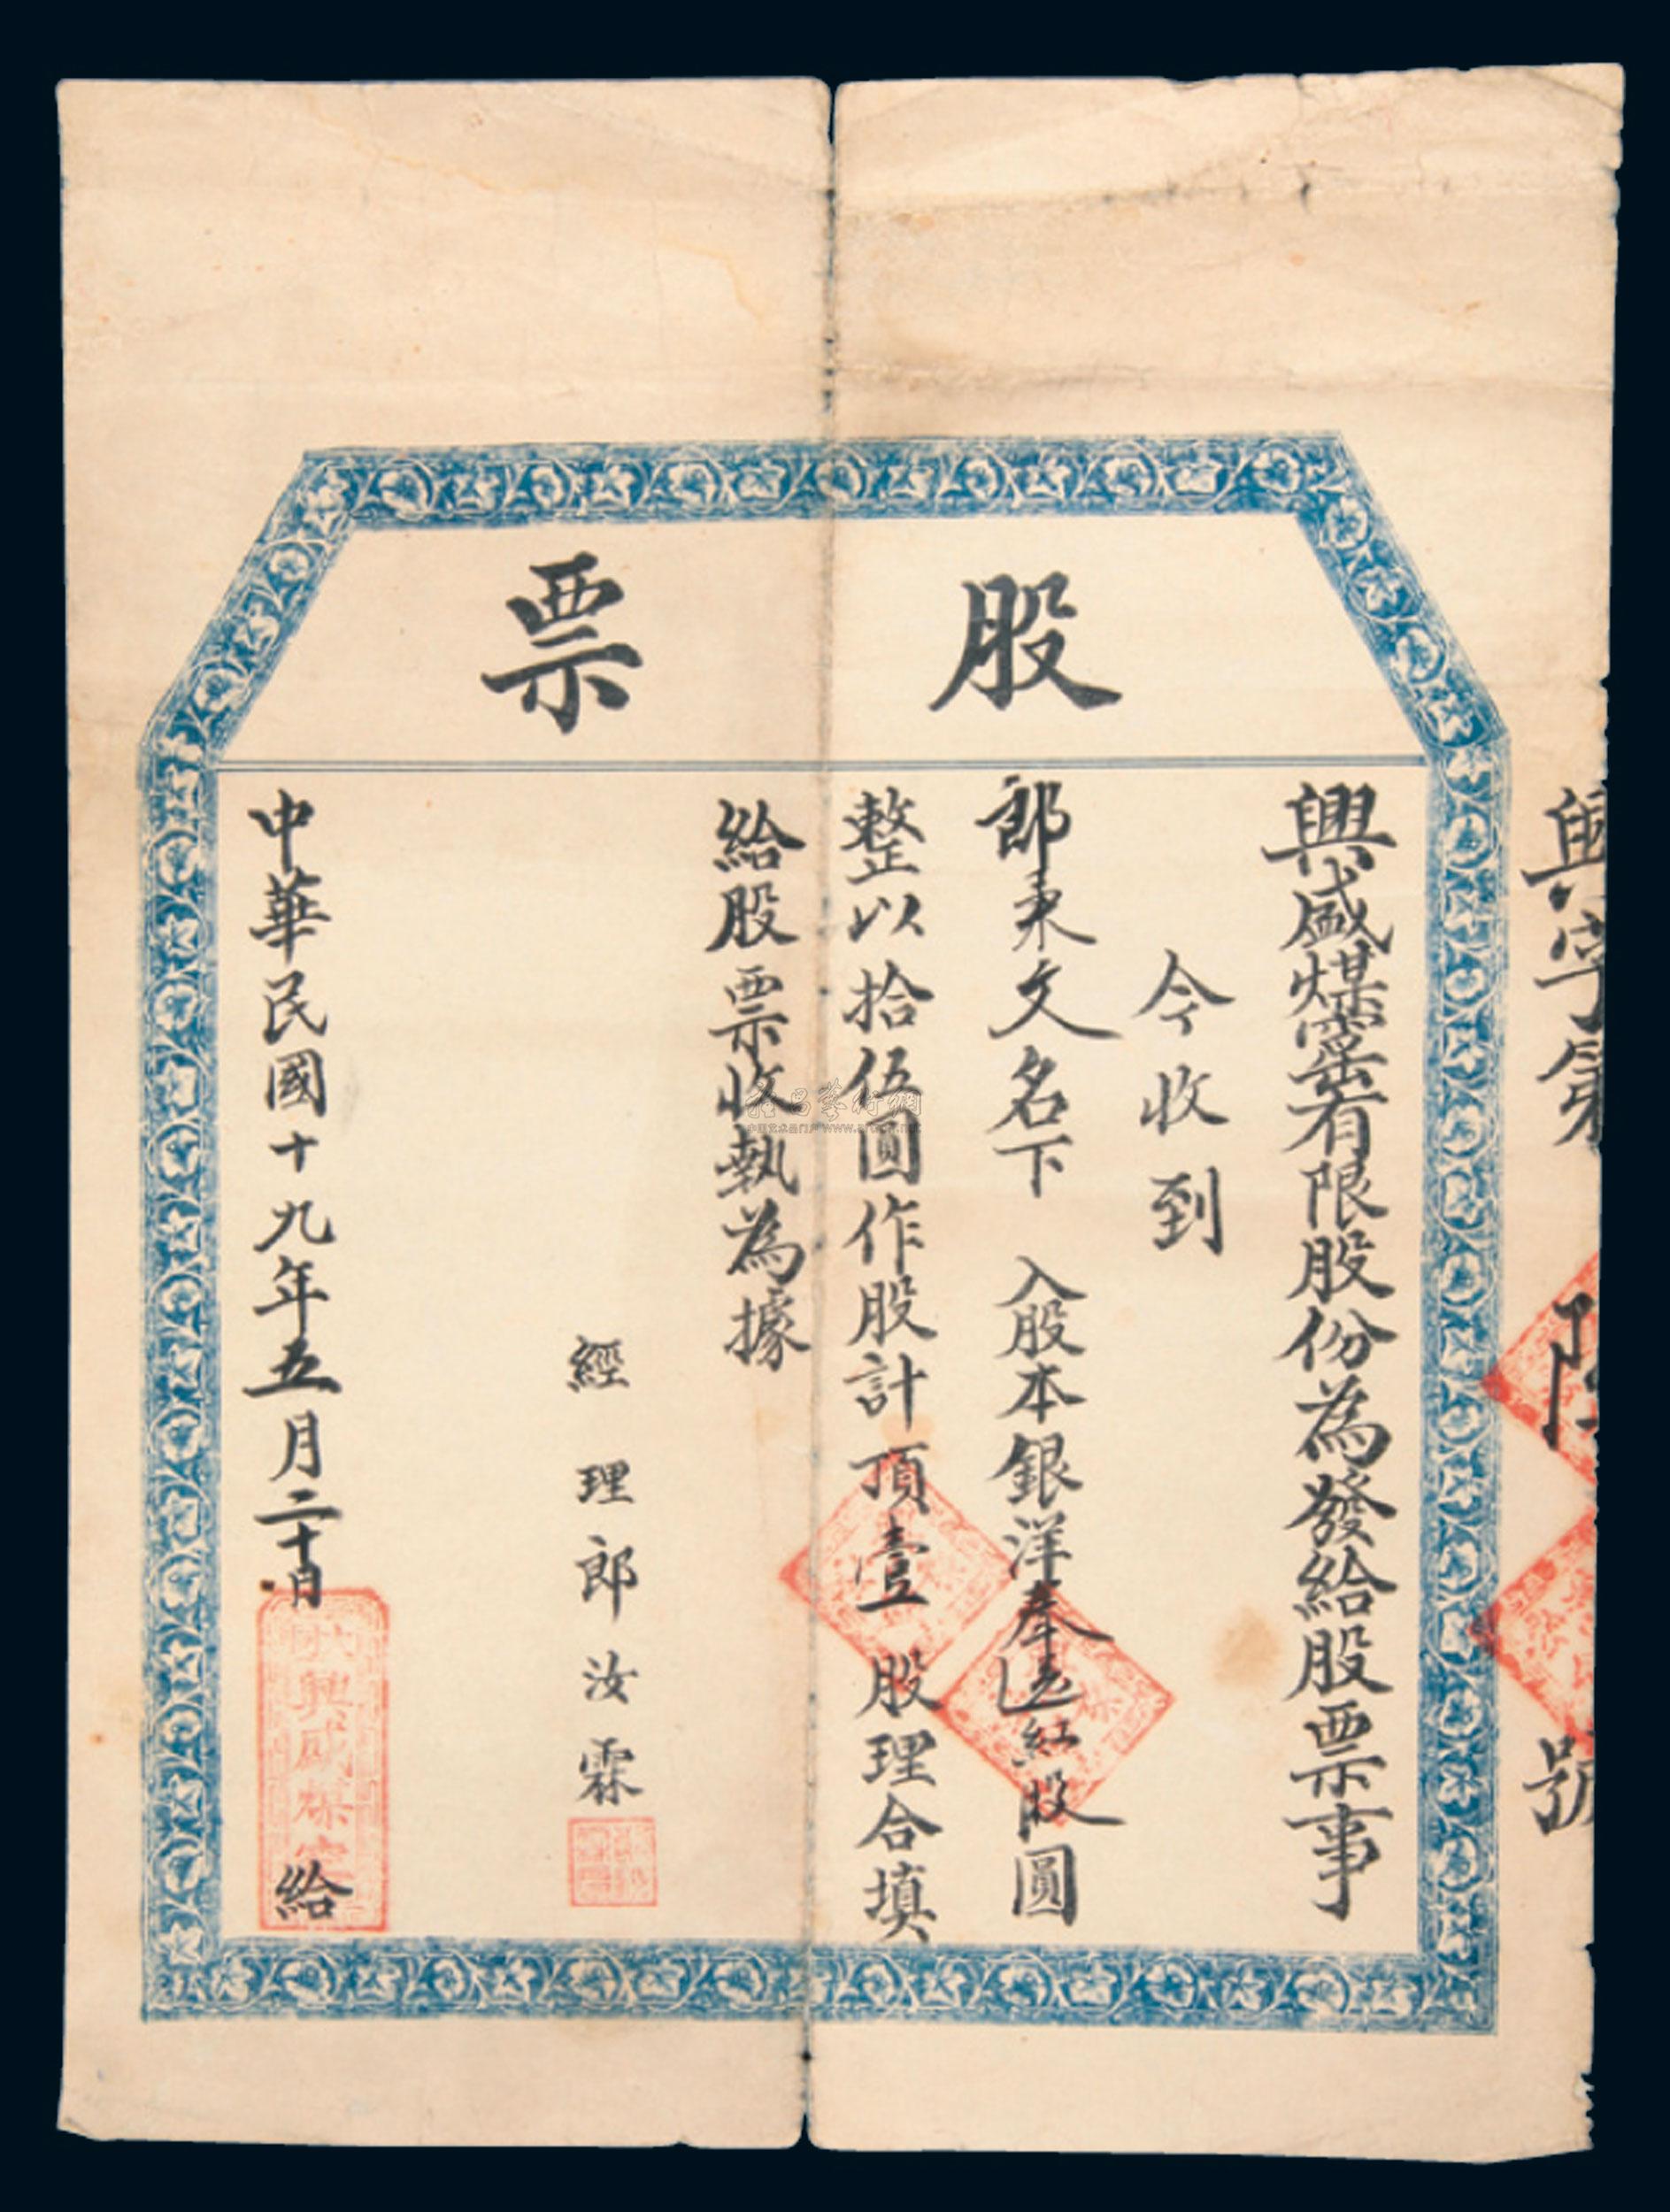 股票
興字第
號
興盛煤窰有限股份為發給股票事
今收到
郎秉文名下 入股本銀洋奉送紅股圓
整以拾伍圓作股計頂壹股理合填
給股票收執為據
經理郎汝霖
中華民國十九年五月二十日 給
興盛煤窰